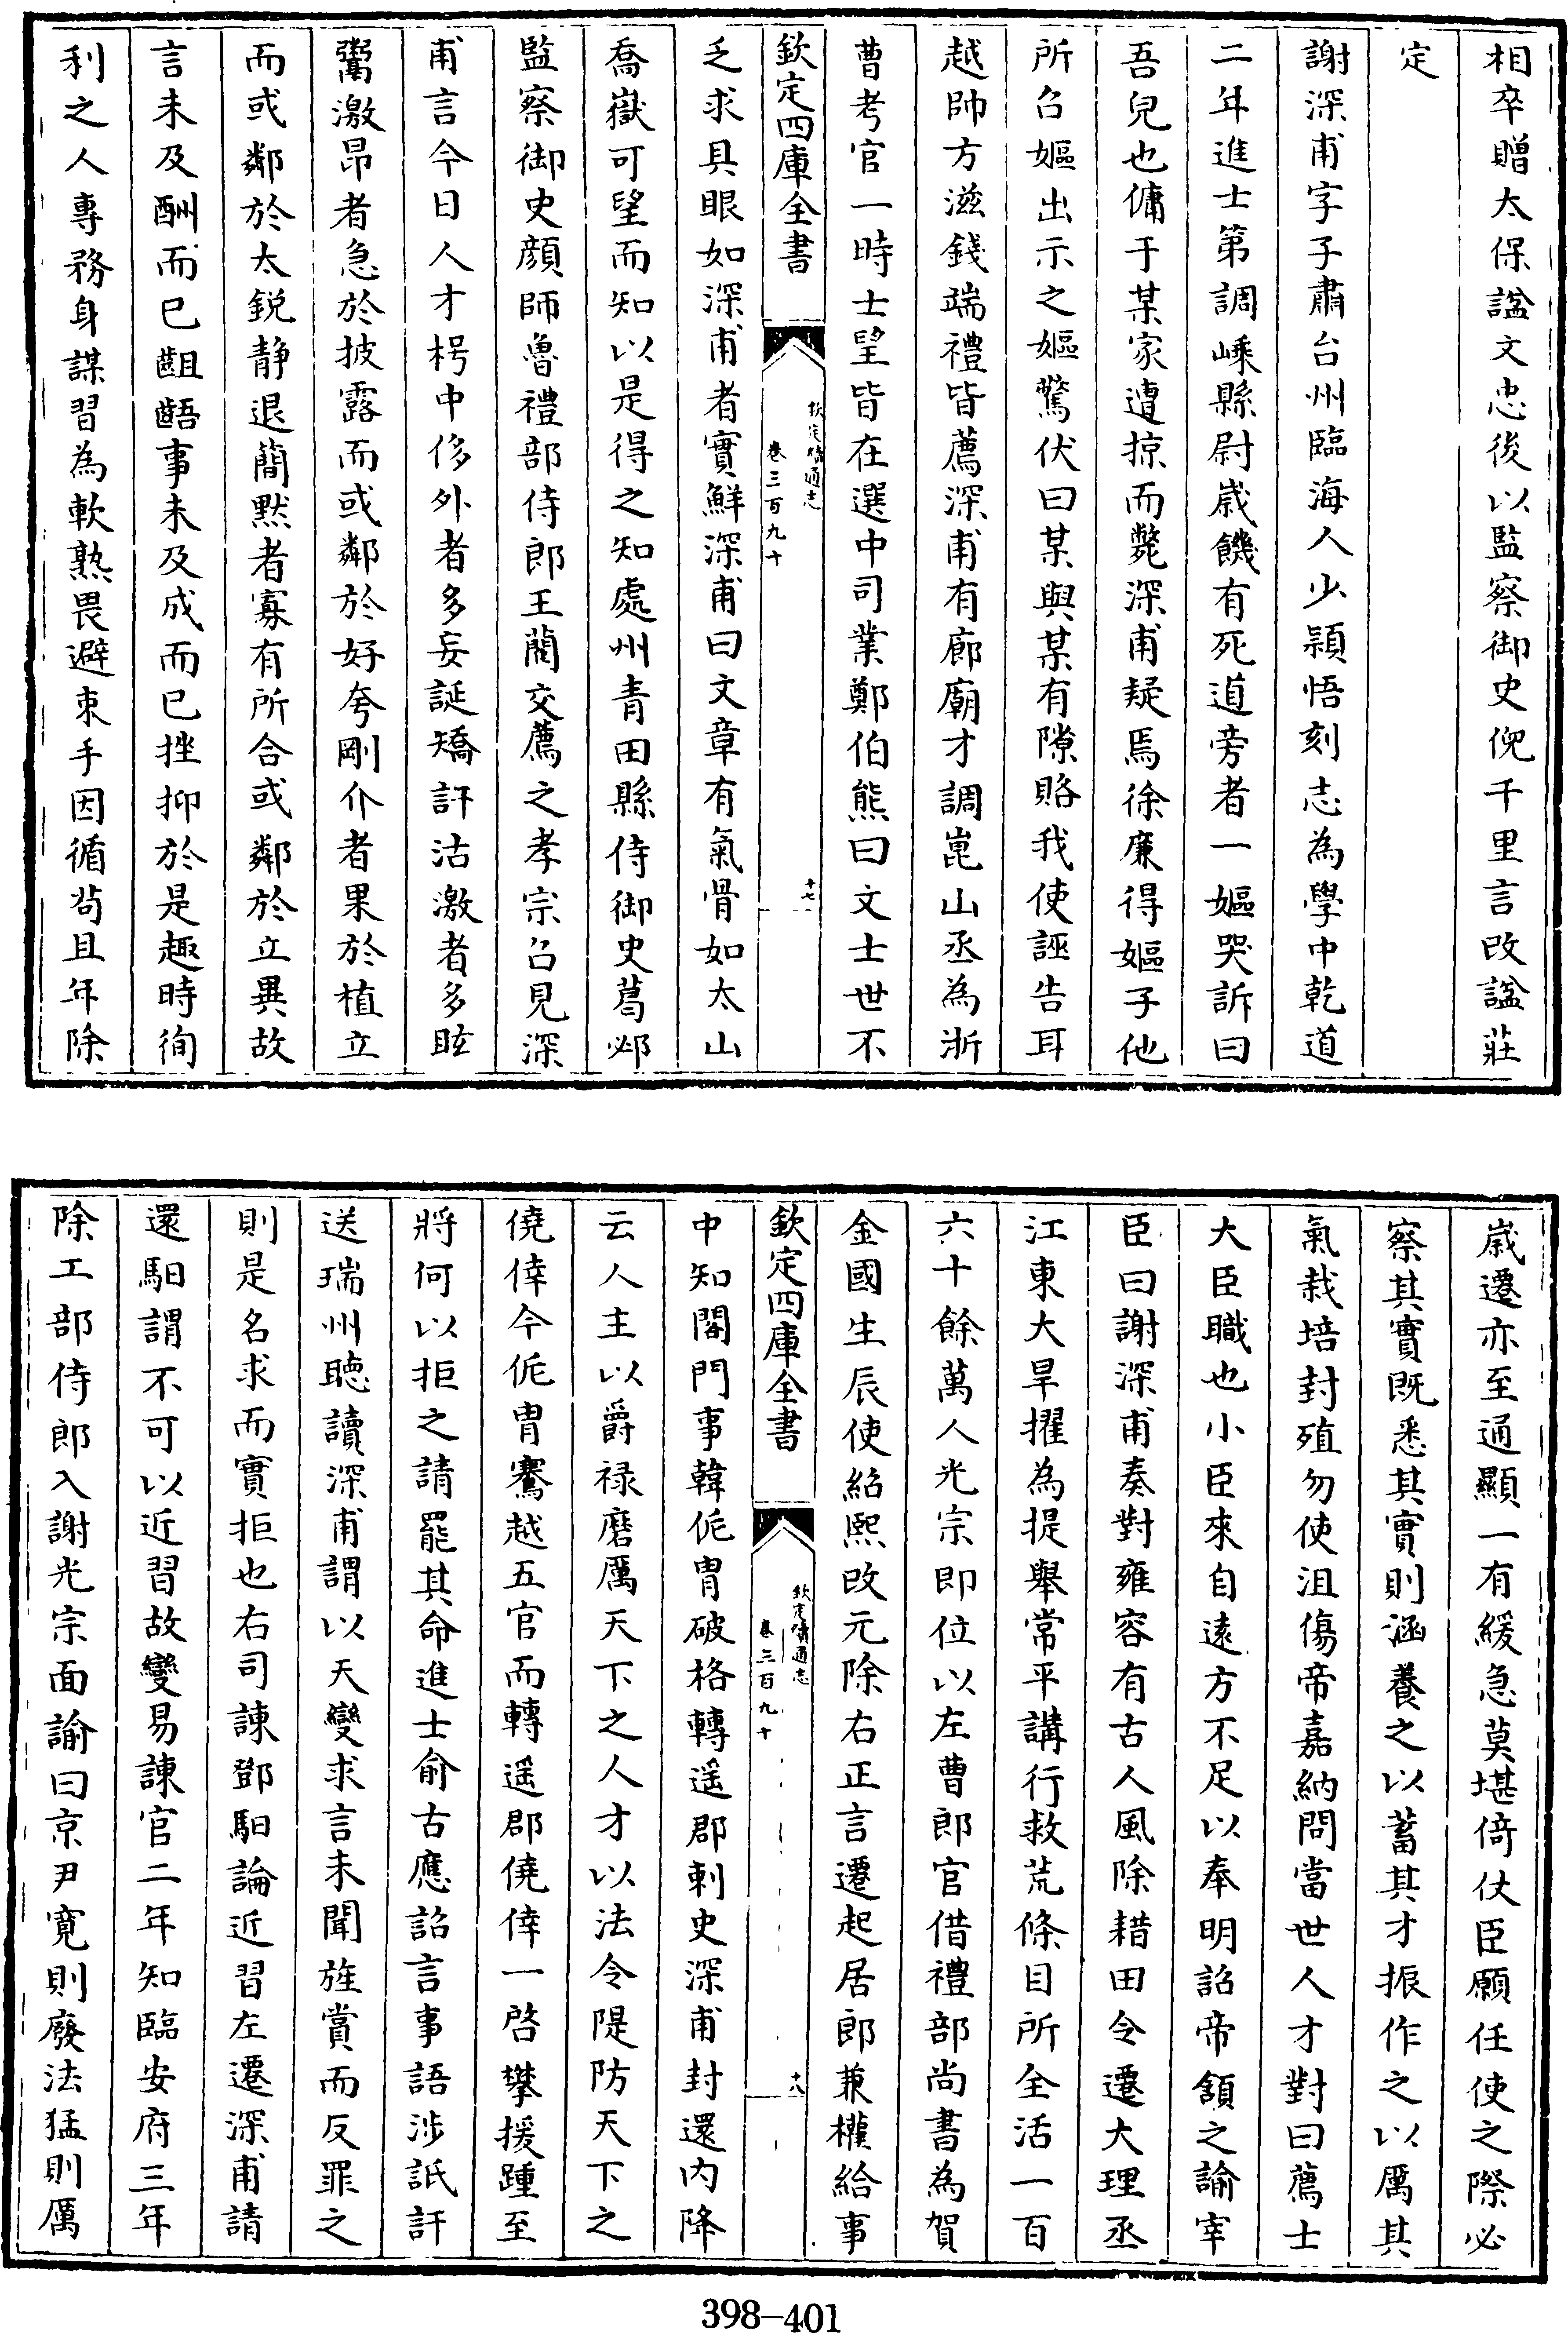 相卒贈太保諡文忠後以監察御史倪千里言改諡莊
定
謝深甫字子肅台州臨海人少頴悟刻志為學中乾道
二年進士第調嵊縣尉嵗饑有死道旁者一嫗哭訴曰
吾兒也傭于某家遭掠而斃深甫疑焉徐廉得嫗子他
所召嫗出示之嫗驚伏曰某與某有隙賂我使誣告耳
越帥方滋錢端禮皆薦深甫有廊廟才調崑山丞為浙
曹考官一時士望皆在選中司業鄭伯熊曰文士世不
欽定四庫全書
欽定續通志
卷三百九十
十七
乏求具眼如深甫者實鮮深甫曰文章有氣骨如太山
喬嶽可望而知以是得之知處州青田縣侍御史葛邲
監察御史顔師魯禮部侍郎王藺交薦之孝宗召見深
甫言今日人才枵中侈外者多妄誕矯訐沽激者多眩
鬻激昂者急於披露而或鄰於好夸剛介者果於植立
而或鄰於太銳靜退簡黙者寡有所合或鄰於立異故
言未及酬而已齟齬事未及成而已挫抑於是趣時徇
利之人專務身謀習為軟熟畏避束手因循苟且年除
嵗遷亦至通顯一有緩急莫堪倚仗臣願任使之際必
察其實既悉其實則涵養之以蓄其才振作之以厲其
氣栽培封殖勿使沮傷帝嘉納問當世人才對曰薦士
大臣職也小臣來自遠方不足以奉明詔帝頷之諭宰
臣曰謝深甫奏對雍容有古人風除耤田令遷大理丞
江東大旱擢為提舉常平講行救荒條目所全活一百
六十餘萬人光宗即位以左曹郎官借禮部尚書為賀
金國生辰使紹熙改元除右正言遷起居郎兼權給事
欽定四庫全書
欽定續通志
卷三百九十
十八
中知閤門事韓侂冑破格轉遥郡刺史深甫封還内降
云人主以爵祿磨厲天下之人才以法令隄防天下之
僥倖今侂冑鶱越五官而轉遥郡僥倖一啓攀援踵至
將何以拒之請罷其命進士俞古應詔言事語涉詆訐
送瑞州聽讀深甫謂以天變求言未聞旌賞而反罪之
則是名求而實拒也右司諌鄧馹論近習左遷深甫請
還馹謂不可以近習故變易諌官二年知臨安府三年
除工部侍郎入謝光宗面諭曰京尹寛則廢法猛則厲
398-401